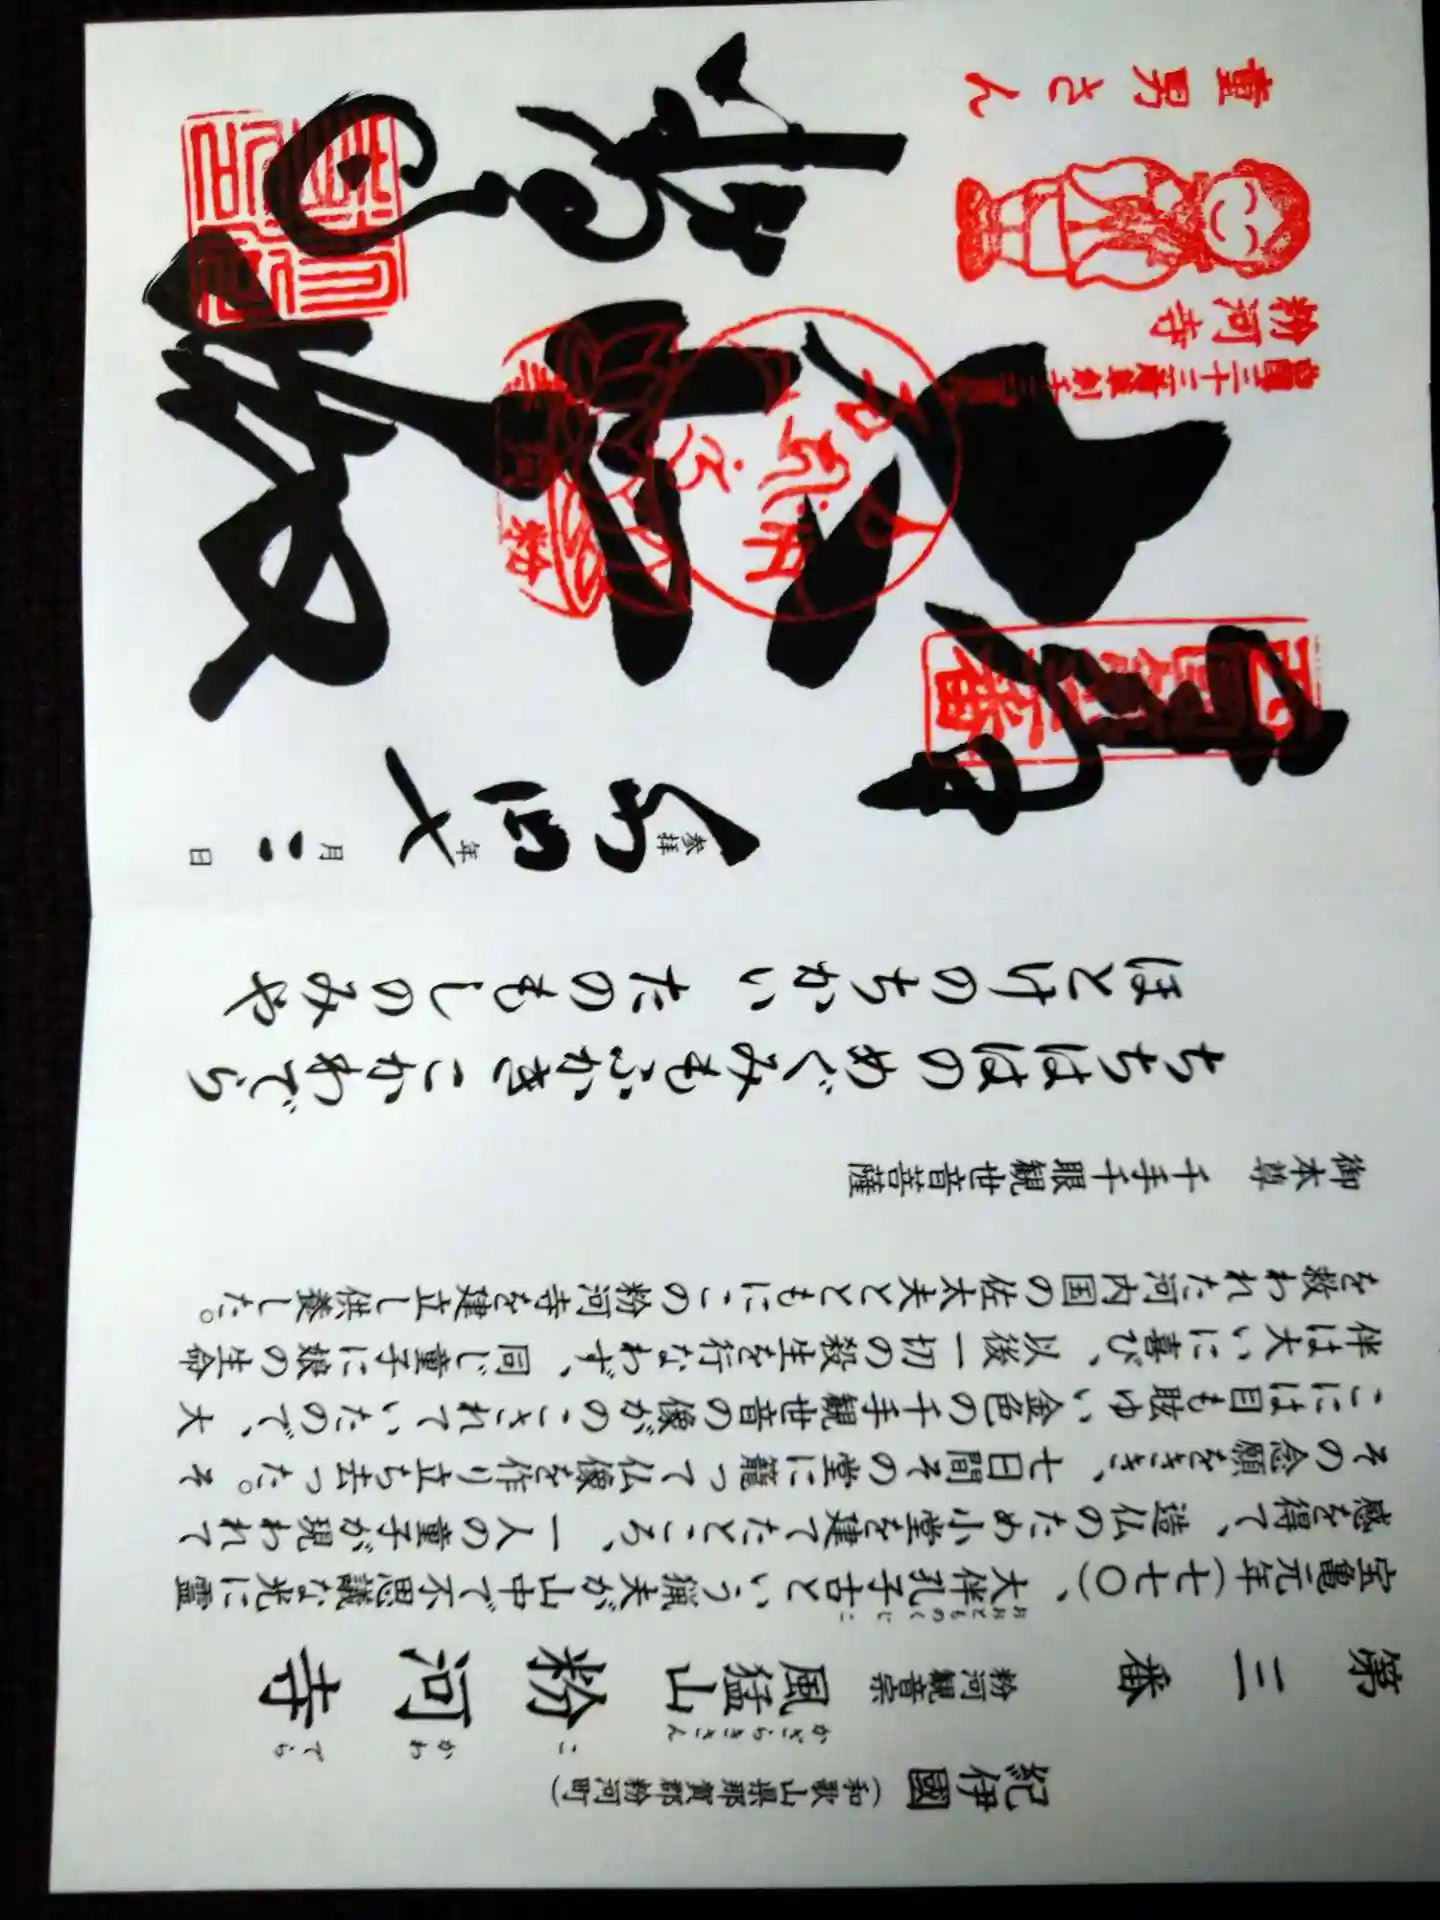 紀伊國(和歌山県那賀郡粉河町)
第三番 粉河観音宗 風猛山 粉河寺
かざらきさん こ かわ でら
宝亀元年(七七〇)、大伴孔子古という猟夫が山中で不思議な光に霊
おおとものくじこ
感を得て、造仏のため小堂を建てたところ、一人の童子が現われて
その念願をきき、七日間その堂に籠って仏像を作り立ち去った。そ
こには目も眩ゆい金色の千手観世音の像がのこされていたので、大
伴は大いに喜び、以後一切の殺生を行なわず、同じ童子に娘の生命
を救われた河内国の佐太夫とともにこの粉河寺を建立し供養した。
御本尊 千手千眼観世音菩薩
ちちははのめぐみもふかきこかわでら
ほとけのちかい たのもしのみや
参拝 年 月 日
奉拝
西国第三番
大悲殿
粉河寺
童男さん
粉河寺